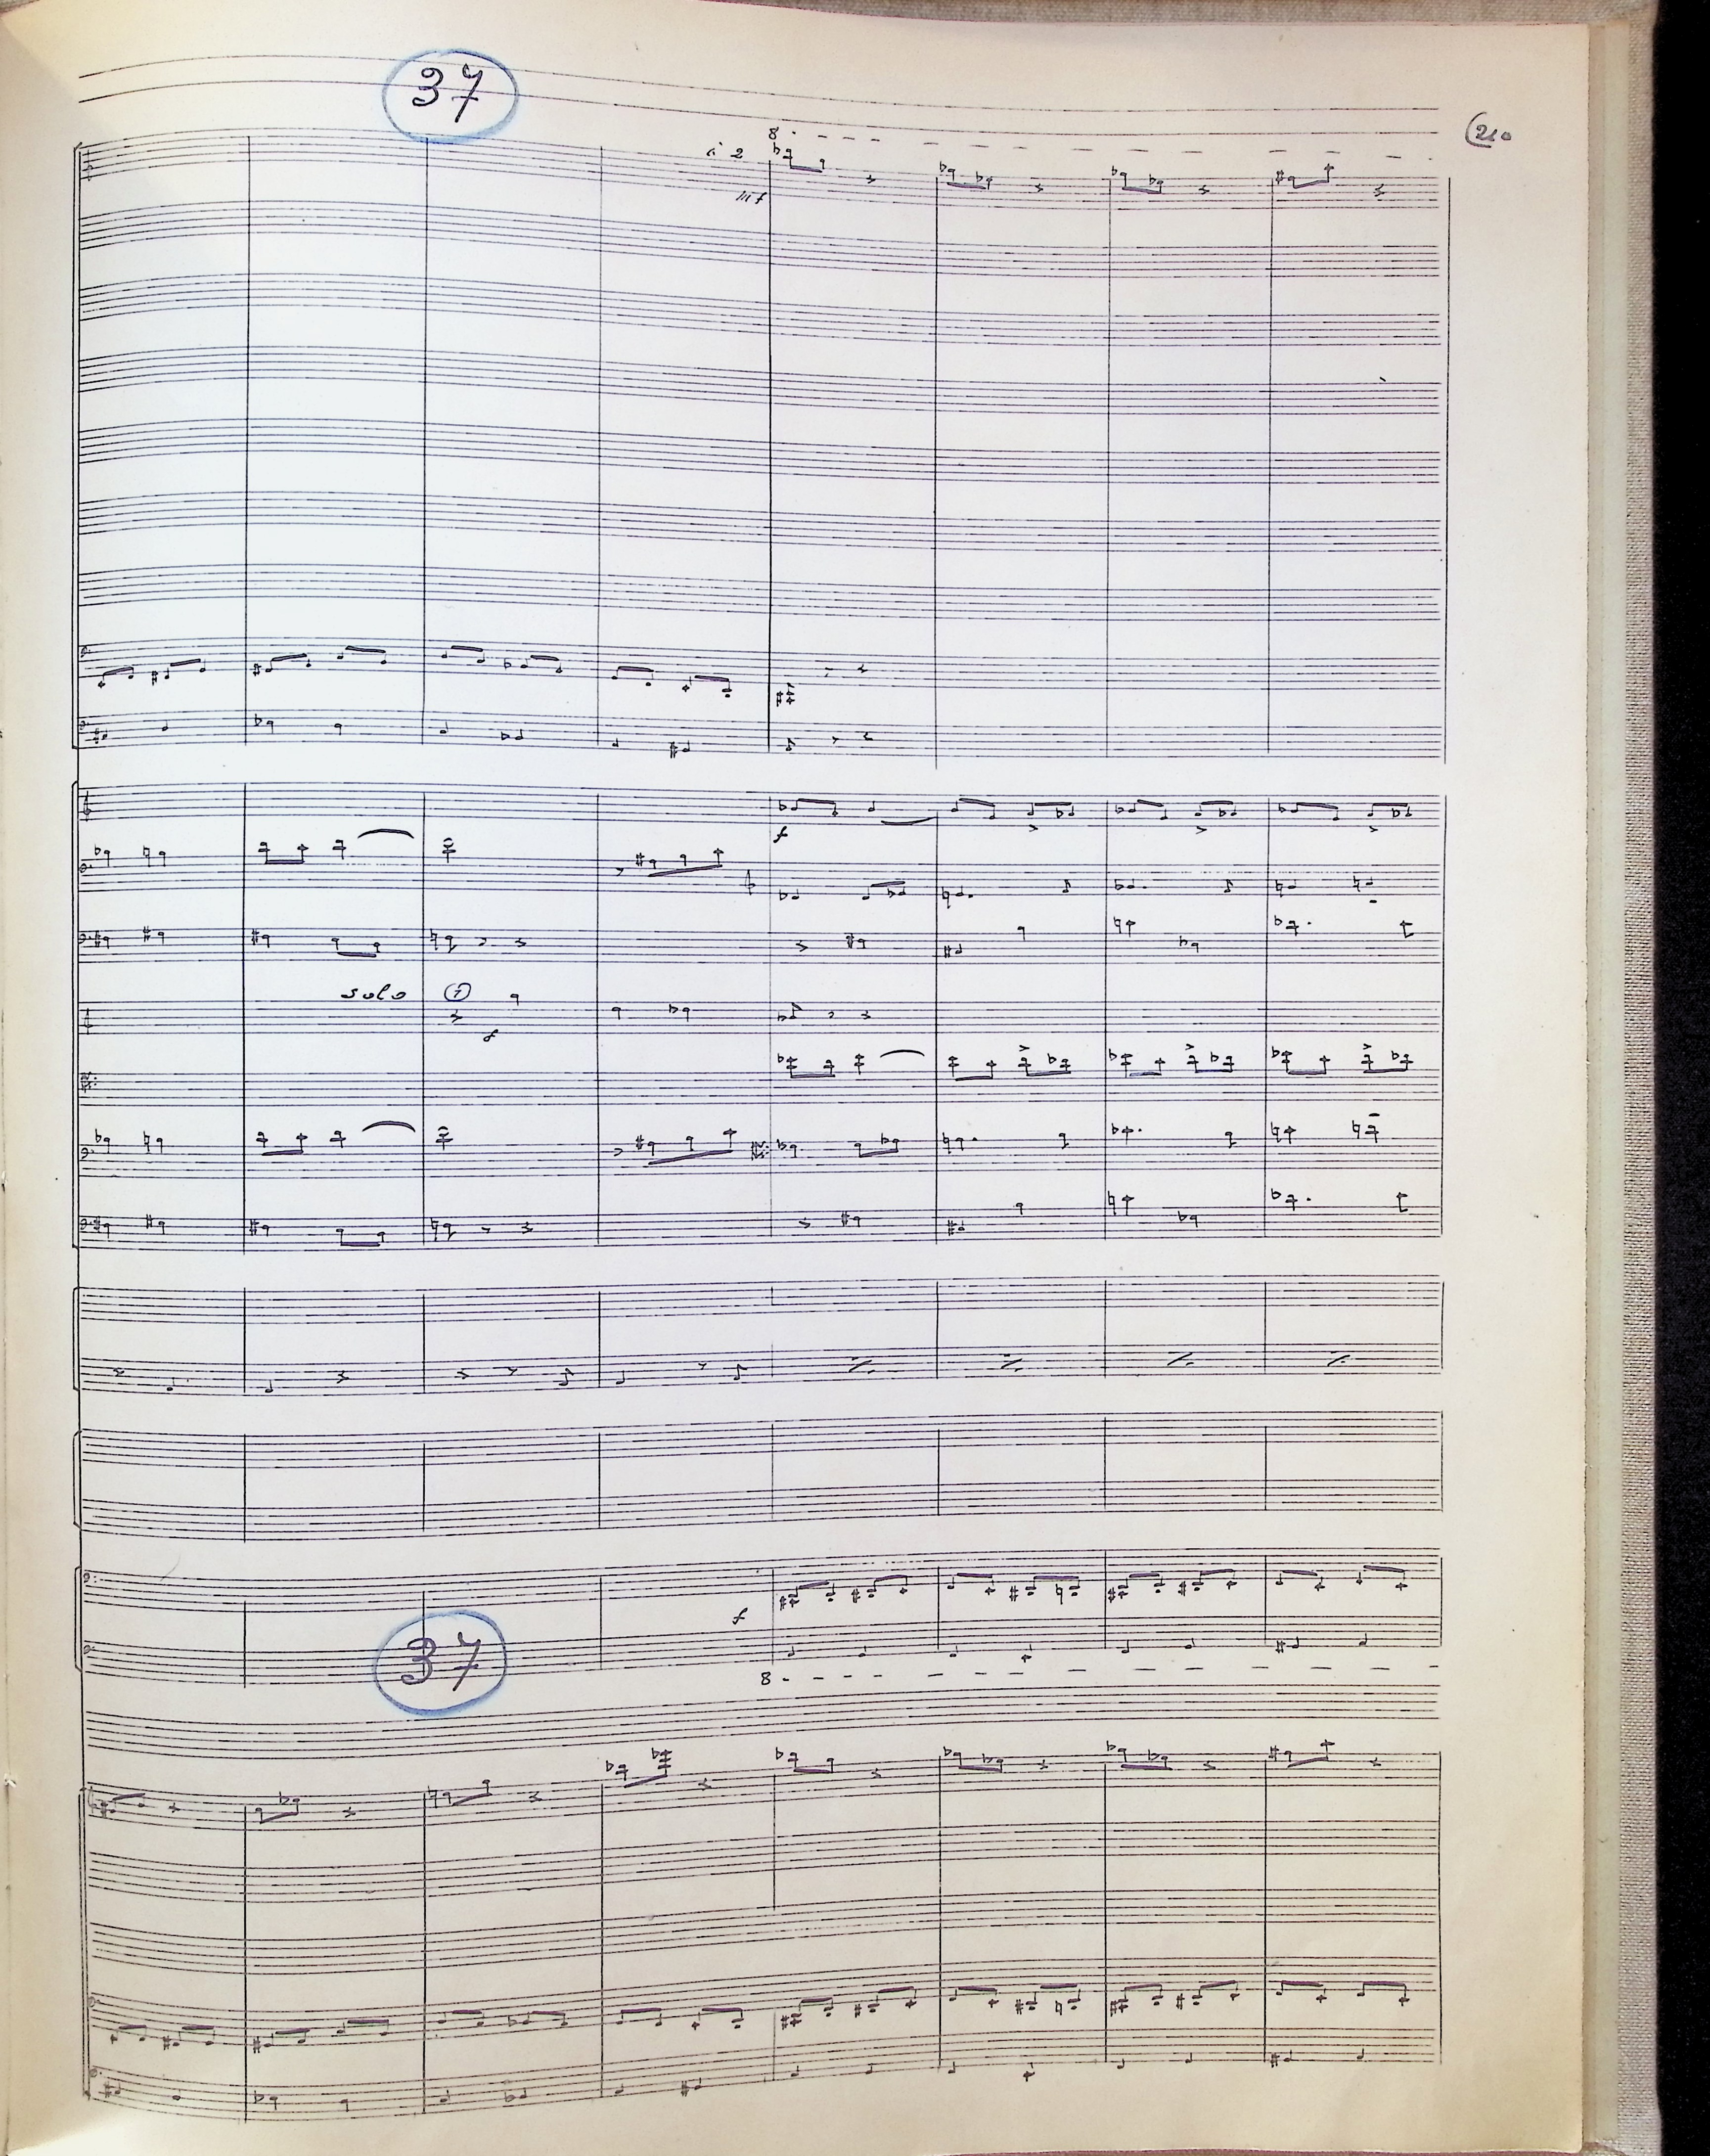 37
(210
8
à 2
mf
f
solo
1
f
f
37
8